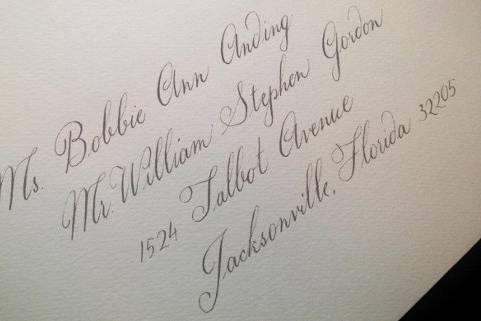 Ms. Bobbie Ann Anding
Mr. William Stephen Gordon
1524 Talbot Avenue
Jacksonville, Florida 32205